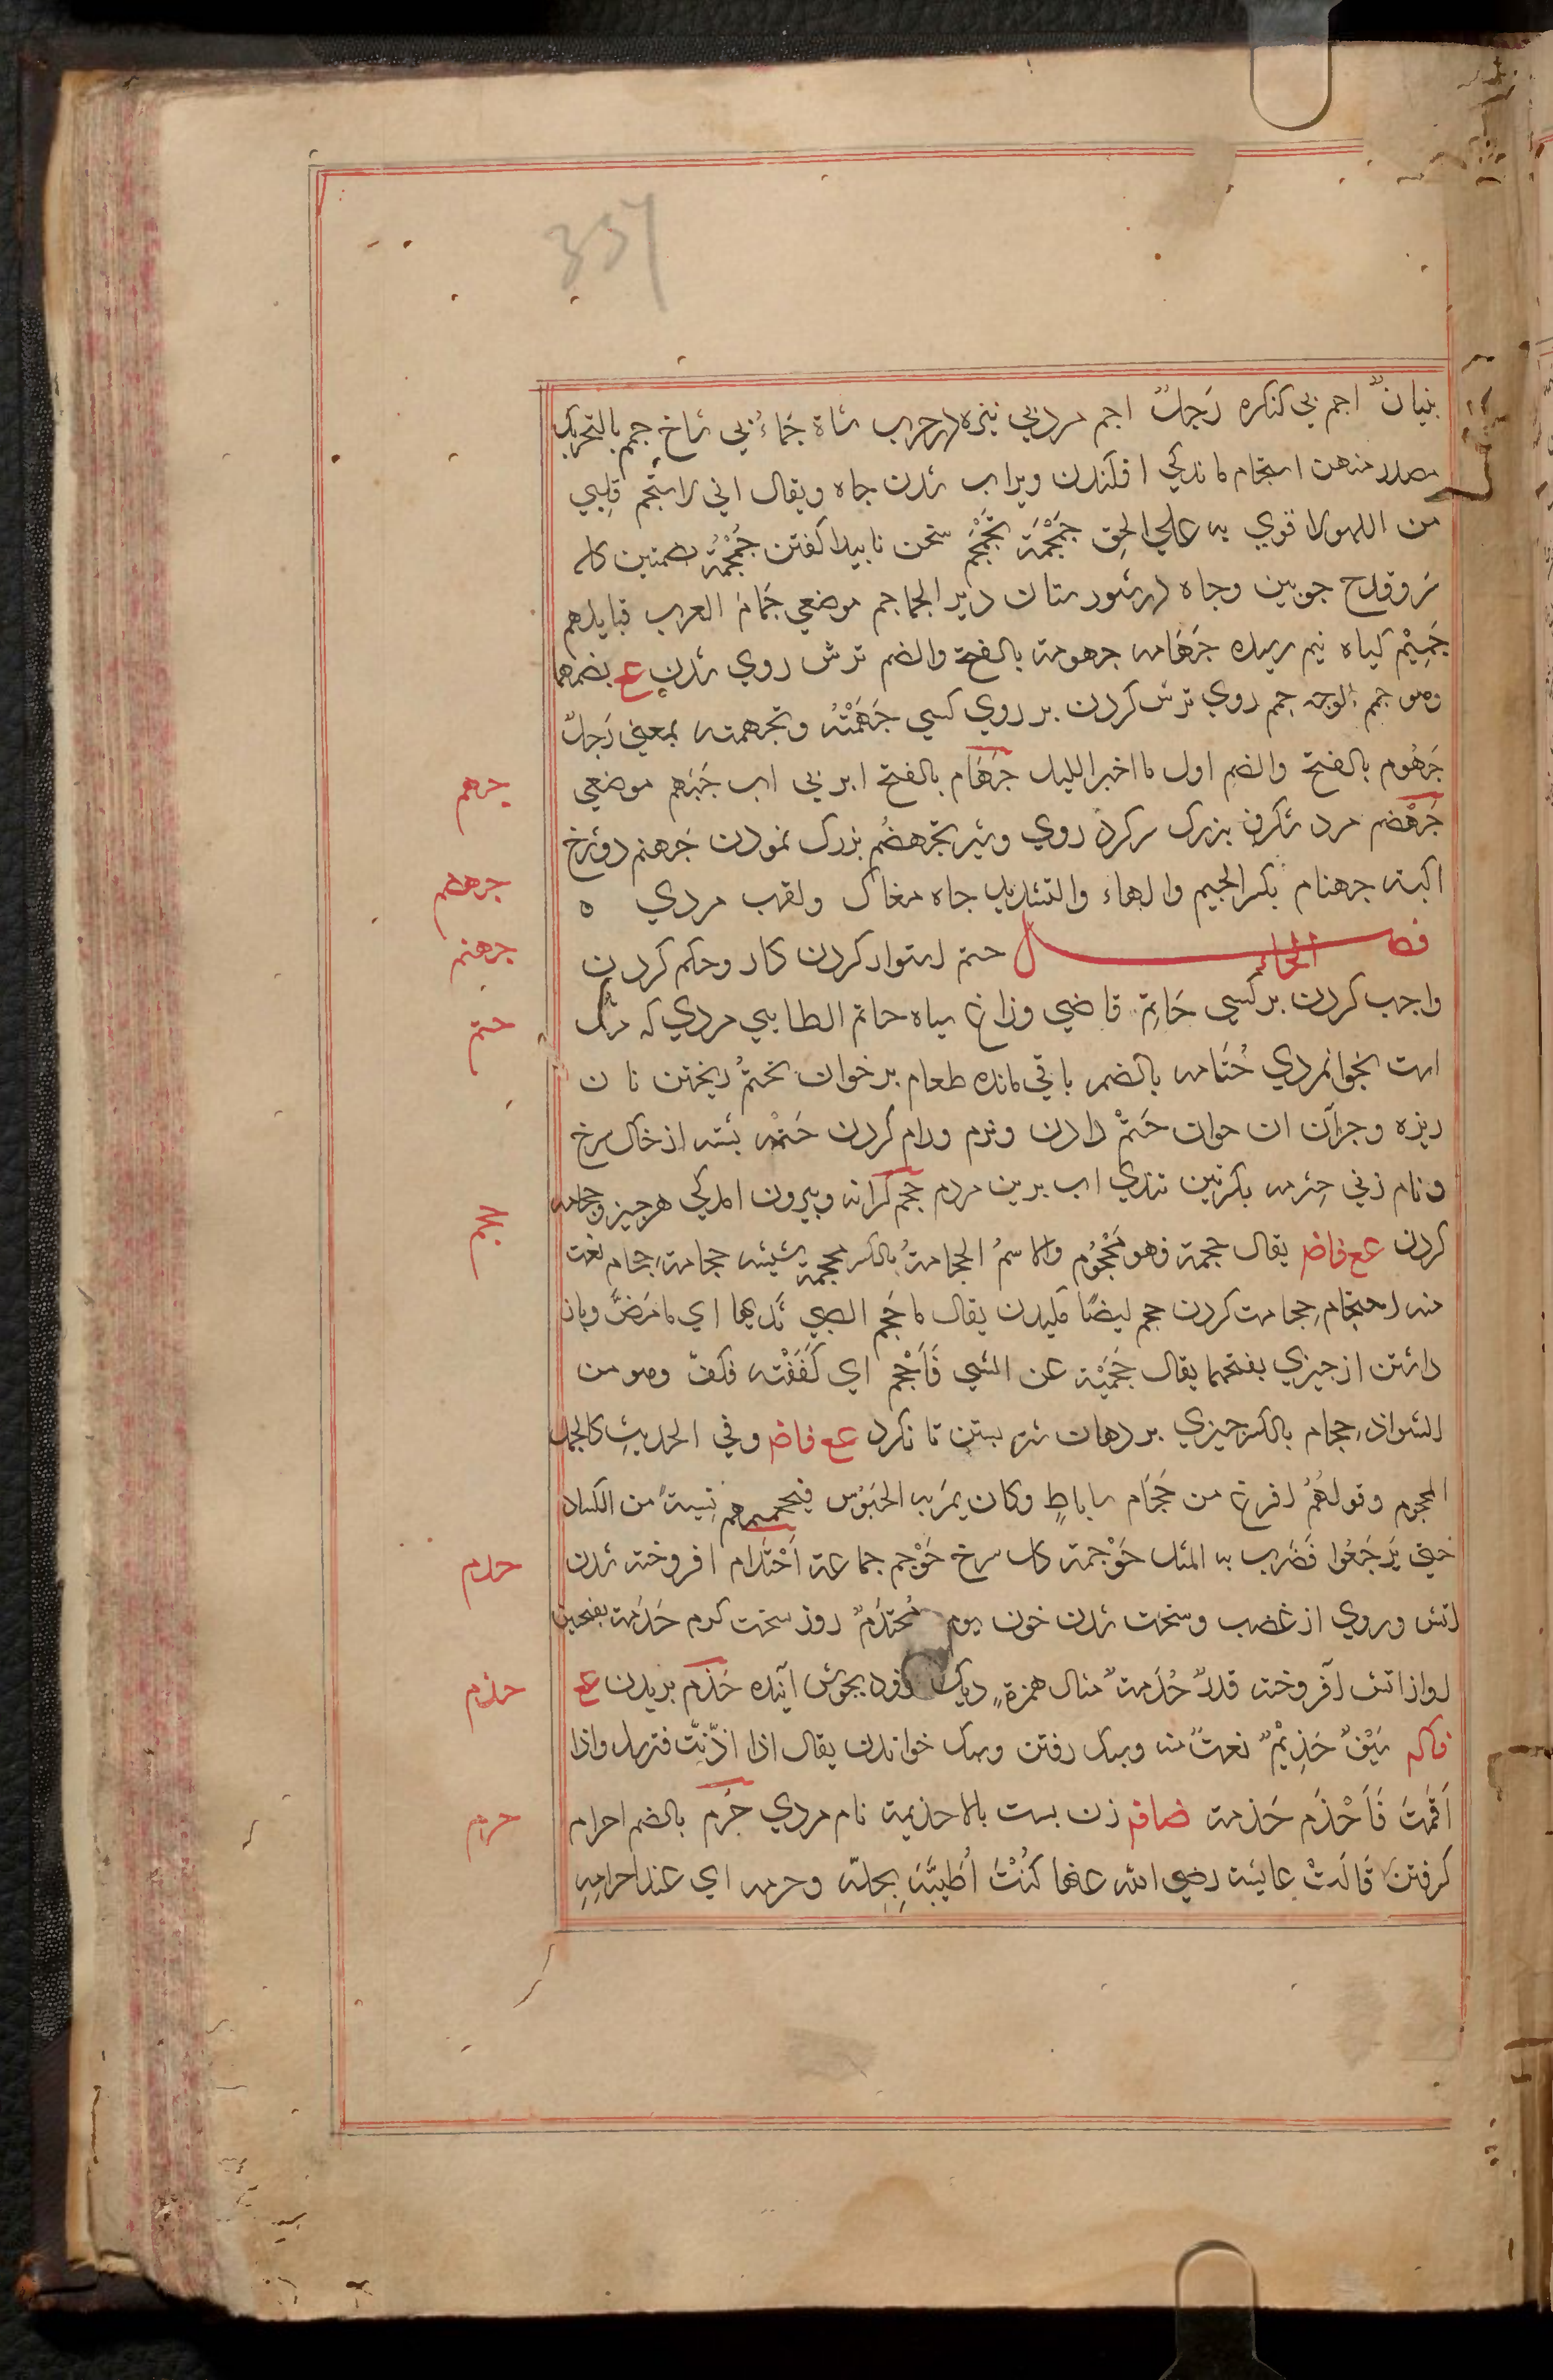 357
بنيانٌ اجم بى كنكره رَجلٌ اجم مرد بى نيزه درحرب شاة جَماءُ بى شاخ جمم بالتحريك
مصدر منهن استجمام ماندكي افكندن وپراب شدن چاه ويقال اني لاستجم قلبي
من اللهو لا قوي به علي الحق جَمْجَمَة تَجَمْجُم سخن ناپيدا كفتن جُمْجُمَة بضمتين كاله
سَر وقدح چوبين وچاه درشورستان دير الجماجم موضعي جَمام العرب قبايلهم
جَمِيْم كياه نيم رسيده جَهَامه جهومة بالفتح والضم ترش روي شدن ع بضمهما
وهو جهم الوجه جهم روي ترش كردن بر روي كسي جَهَمْتُه وتجهمته بمعني رَجلٌ
جَهُوم بالفتح والضم اول ما اخير الليل جَهَام بالفتح ابر بى اب جَيْهم موضعي
جَهْضَم مرد شكرف بزرك سر كرد روي وشير تجهضُم بزرك نمودن جَهنم دوزخ
اكبته جهنام بكسر الجيم والهاء والتشديد چاه مغاك ولقب مردي ه
فصل الحاء حتم استوار كردن كار وحكم كردن
واجب كردن بر كسي حَاتِم قاضي وزاغ سياه حاتم الطايي مردي كه مثل
است بجوانمردي حُتَامه بالضم باقي مانده طعام بر خوان تختُّم ريختن نان
ريزه وجزآن ان خوان حَثْم دادن ونرم ورام كردن حَثمَه پشته از خاك سرخ
ونام زني حِثرمه بكسرتين تندي اب برين مردم حجم كرانه وبيرون امدكي هرچيز وحجامه
كردن ع فاض يقال حجمة فهو مَحْجُوم والاسمُ الحجامةُ بالكسر محجمة شيشه حجامة، حجام نعت
منه احتجام حجامت كردن حجم ليضًا مكيدن يقال ما حَجم الصبي ثديها اي ما مَصَّ وباز
داشتن از چيزي بفتحهما يقال حَجَمْتُه عن الشي فَاَحْجَم اي كَفَفْتُه فكفّ وهو من
الشواذ، حجام بالكسر چيزي بر دهان شتر بستن تا نكزد ع فاض وفي الحديث كالجمل
المحجوم وقولهُم افرغ من حَجَام ساباطٍ وكان يمرّ به الجيوش فيحجمهم نسية من الكساد
حتي يَرجَعُوا فَضُرب به المثل حَوْجمة كل سرخ حَوْجم جماعة اَحْتِدَام افروخته شدن
اتش وروي از غضب وسخت شدن خون يوم مُحتدِمٌ روز سخت كرم حَدَمَة بفتحتين
اواز اتش افروخته قدرٌ حُدَمةٌ مثال همزة ديك زود بجوش آينده حَذم بريدن ع
فاكه سَيْفٌ حَذِيْمٌ نعتٌ منه وسبك رفتن وسبك خواندن يقال اذا اذّنْتَ فترسل واذا
اَقمتَ فَاَحْذَم حَذمة ضافه زن پست بالا حذيمة نام مردي حَرَم بالضم احرام
كرفتن قَالَتْ عايشة رضي الله عنها كُنْتُ اُطَيِّبُهُ بِحِلّه وحرمه اي عند احرامه
جرهم
جهضم
جهنم
حتم
حجم
حدم
حذم
حرم